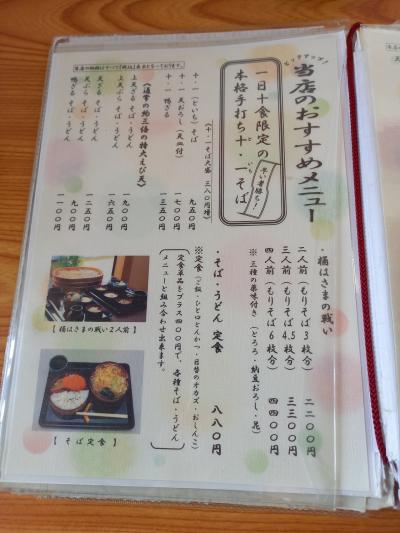 ピックアップ!
当店のおすすめメニュー
一日十食限定の
本格手打ち十・一そば
早い者勝ち!
(十・一そば大盛 三八〇円増)
十・一(といち)そば 九五〇円
十・一 天おろし(天皿付) 一七〇〇円
十・一 鴨ざる 一三五〇円
(通常の約三倍の特大えび天)
上天ざる そば・うどん 一九〇〇円
上天ぷら そば・うどん 一六五〇円
天ざる そば・うどん 一二五〇円
天ぷら そば・うどん 九〇〇円
鴨ざる そば・うどん 一一〇〇円
当店の価格はすべて『税込』表示となっております。
・桶はさまの戦い
二人前(もりそば3枚分) 二二〇〇円
三人前(もりそば4.5枚分) 三三〇〇円
四人前(もりそば6枚分) 四四〇〇円
※三種の薬味付き(とろろ・納豆おろし・花)
・そば・うどん 定食 八八〇円
※定食(ご飯・ひと口とんかつ・日替のオカズ・おしんこ)
定食単品をプラス四〇〇円で、各種そば・うどん
メニューと組み合わせ出来ます。
【桶はさまの戦い2人前】
【そば定食】